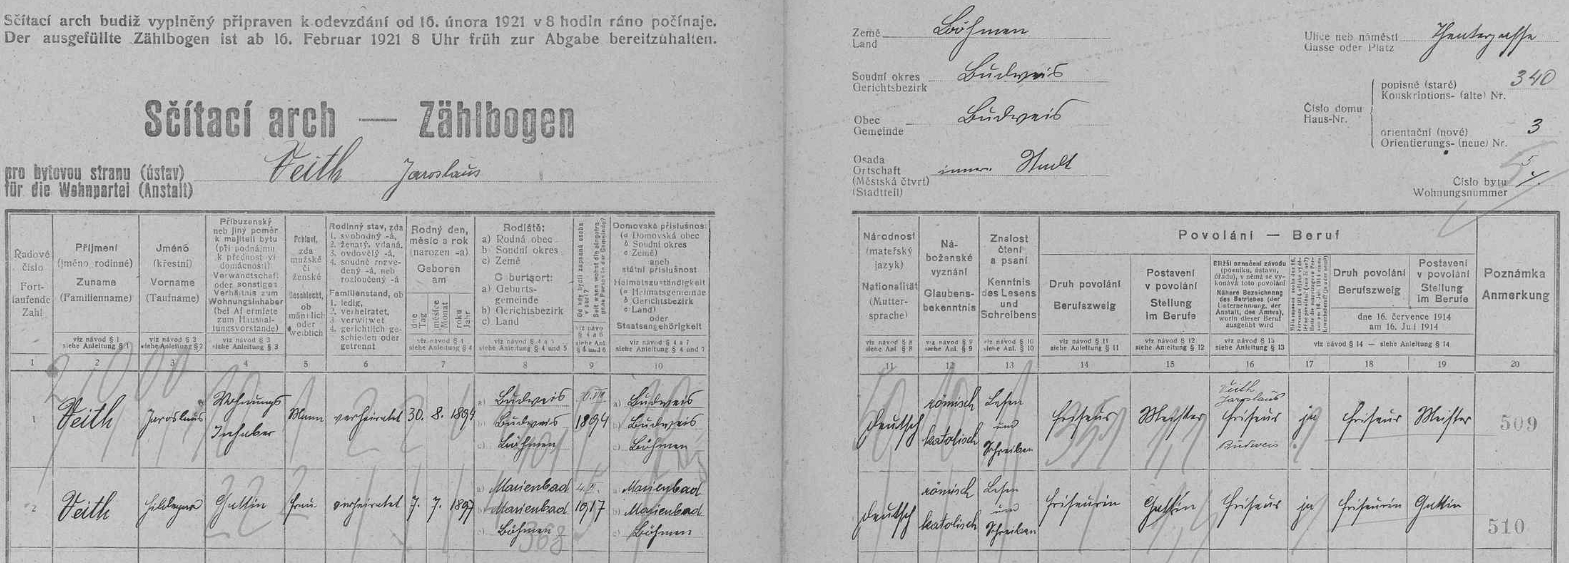 Sčítací arch budiž vyplněný připraven k odevzdání od 16. února 1921 v 8 hodin ráno počínaje.
Der ausgefüllte Zählbogen ist ab 16. Februar 1921 8 Uhr früh zur Abgabe bereitzuhalten.
Sčítací arch — Zählbogen
pro bytovou stranu (ústav)
für die Wohnpartei (Anstalt)
Veith Jaroslaus
Země
Land
Böhmen
Soudní okres
Gerichtsbezirk
Budweis
Obec
Gemeinde
Budweis
Osada
Ortschaft
(Městská čtvrť)
(Stadtteil)
innere Stadt
Ulice neb náměstí
Gasse oder Platz
Theatergasse
Číslo domu
Haus-Nr.
popisné (staré)
Konskriptions- (alte) Nr.
340
orientační (nové)
Orientierungs- (neue) Nr.
3
Číslo bytu
Wohnungsnummer
Řadové
číslo
Fort-
laufende
Zahl
Příjmení
(jméno rodinné)
Zuname
(Familienname)
viz návod § 1
siehe Anleitung § 1
Jméno
(křestní)
Vorname
(Taufname)
viz návod § 2
siehe Anleitung § 2
Příbuzenský
neb jiný poměr
k majiteli bytu
(při podnájmu
k přednost vi
domácnosti)
Verwandtschaft
oder sonstiges
Verhältnis zum
Wohnungsinhaber
(bei Af ermiete
zum Haushal-
tungsvorstande)
viz návod § 3
siehe Anleitung § 3
Pohlaví,
zda
mužské
či
ženské
Geschlecht,
ob
männlich
oder
weiblich
Rodinný stav, zda
1. svobodný -á,
2. ženatý, vdaná,
3. ovdovělý -á,
4. soudně rozve-
dený -á, neb
rozloučený -á
Familienstand, ob
1. ledig,
2. verheiratet,
3. verwitwet
4. gerichtlich ge-
schieden oder
getrennt
Rodný den,
měsíc a rok
(narozen -a)
Geboren
am
dne
Tag
měsíce
Monat
roku
Jahr
viz návod § 4
siehe Anleitung § 4
Rodiště:
a) Rodná obec
b) Soudní okres
c) Země
Geburtsort:
a) Geburts-
gemeinde
b) Gerichtsbezirk
c) Land
viz návod § 4 a 5
siehe Anleitung § 4 und 5
Domovská příslušnost
(a Domovská obec
b Soudní okres
c Země)
aneb
státní příslušnost
Heimatszuständigkeit
(a Heimatsgemeinde
b Gerichtsbezirk
c Land)
oder
Staatsangehörigkeit
viz návod § 4 a 7
siehe Anleitung § 4 und 7
Národnost
(mateřský
jazyk)
Nationalität
(Mutter-
sprache)
viz návod § 8
siehe Anl. § 8
Ná-
boženské
vyznání
Glaubens-
bekenntnis
viz návod § 9
siehe Anl. § 9
Znalost
čtení
a psaní
Kenntnis
des Lesens
und
Schreibens
viz návod § 10
siehe Anl. § 10
Povolání — Beruf
Druh povolání
Berufszweig
viz návod § 11
siehe Anleitung § 11
Postavení
v povolání
Stellung
im Berufe
viz návod § 12
siehe Anleitung § 12
Bližší označení závodu
(podniku, ústavu,
úřadu), v němž se vy-
konává toto povolání
Nähere Bezeichnung
des Betriebes (der
Unternehmung, der
Anstalt, des Amtes),
worin dieser Beruf
ausgeübt wird
viz návod § 13
siehe Anleitung § 13
Druh povolání
Berufszweig
Postavení
v povolání
Stellung
im Berufe
dne 16. července 1914
am 16. Juli 1914
viz návod § 14 — siehe Anleitung § 14
Poznámka
Anmerkung
1 2 3 4 5 6 7 8 9 10 11 12 13 14 15 16 17 18 19 20
1 Veith Jaroslaus Wohnungs Inhaber Mann verheiratet 30. 8. 1894
a) Budweis
b) Budweis
c) Böhmen
1894
a) Budweis
b) Budweis
c) Böhmen
deutsch
römisch
katolisch
Lesen
und
Schreiben
Friseur Meister
Veith
Jaroslaus
Friseur
Budweis
ja Friseur Meister
509
2 Veith Hildegard Gattin Frau verheiratet 7. 7. 1897
a) Marienbad
b) Marienbad
c) Böhmen
368
1917
a) Marienbad
b) Marienbad
c) Böhmen
deutsch
römisch
katolisch
Lesen
und
Schreiben
Friseurin Gattin Friseur ja Friseurin Gattin
510